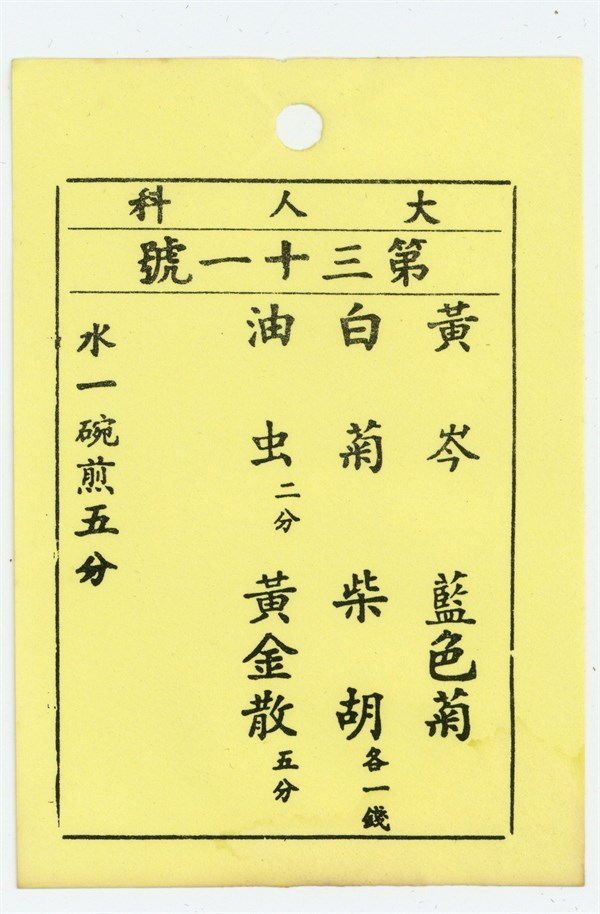 大人科
第三十一號
黃岑 藍色菊
白菊 柴胡各一錢
油虫二分 黃金散五分
水一碗煎五分